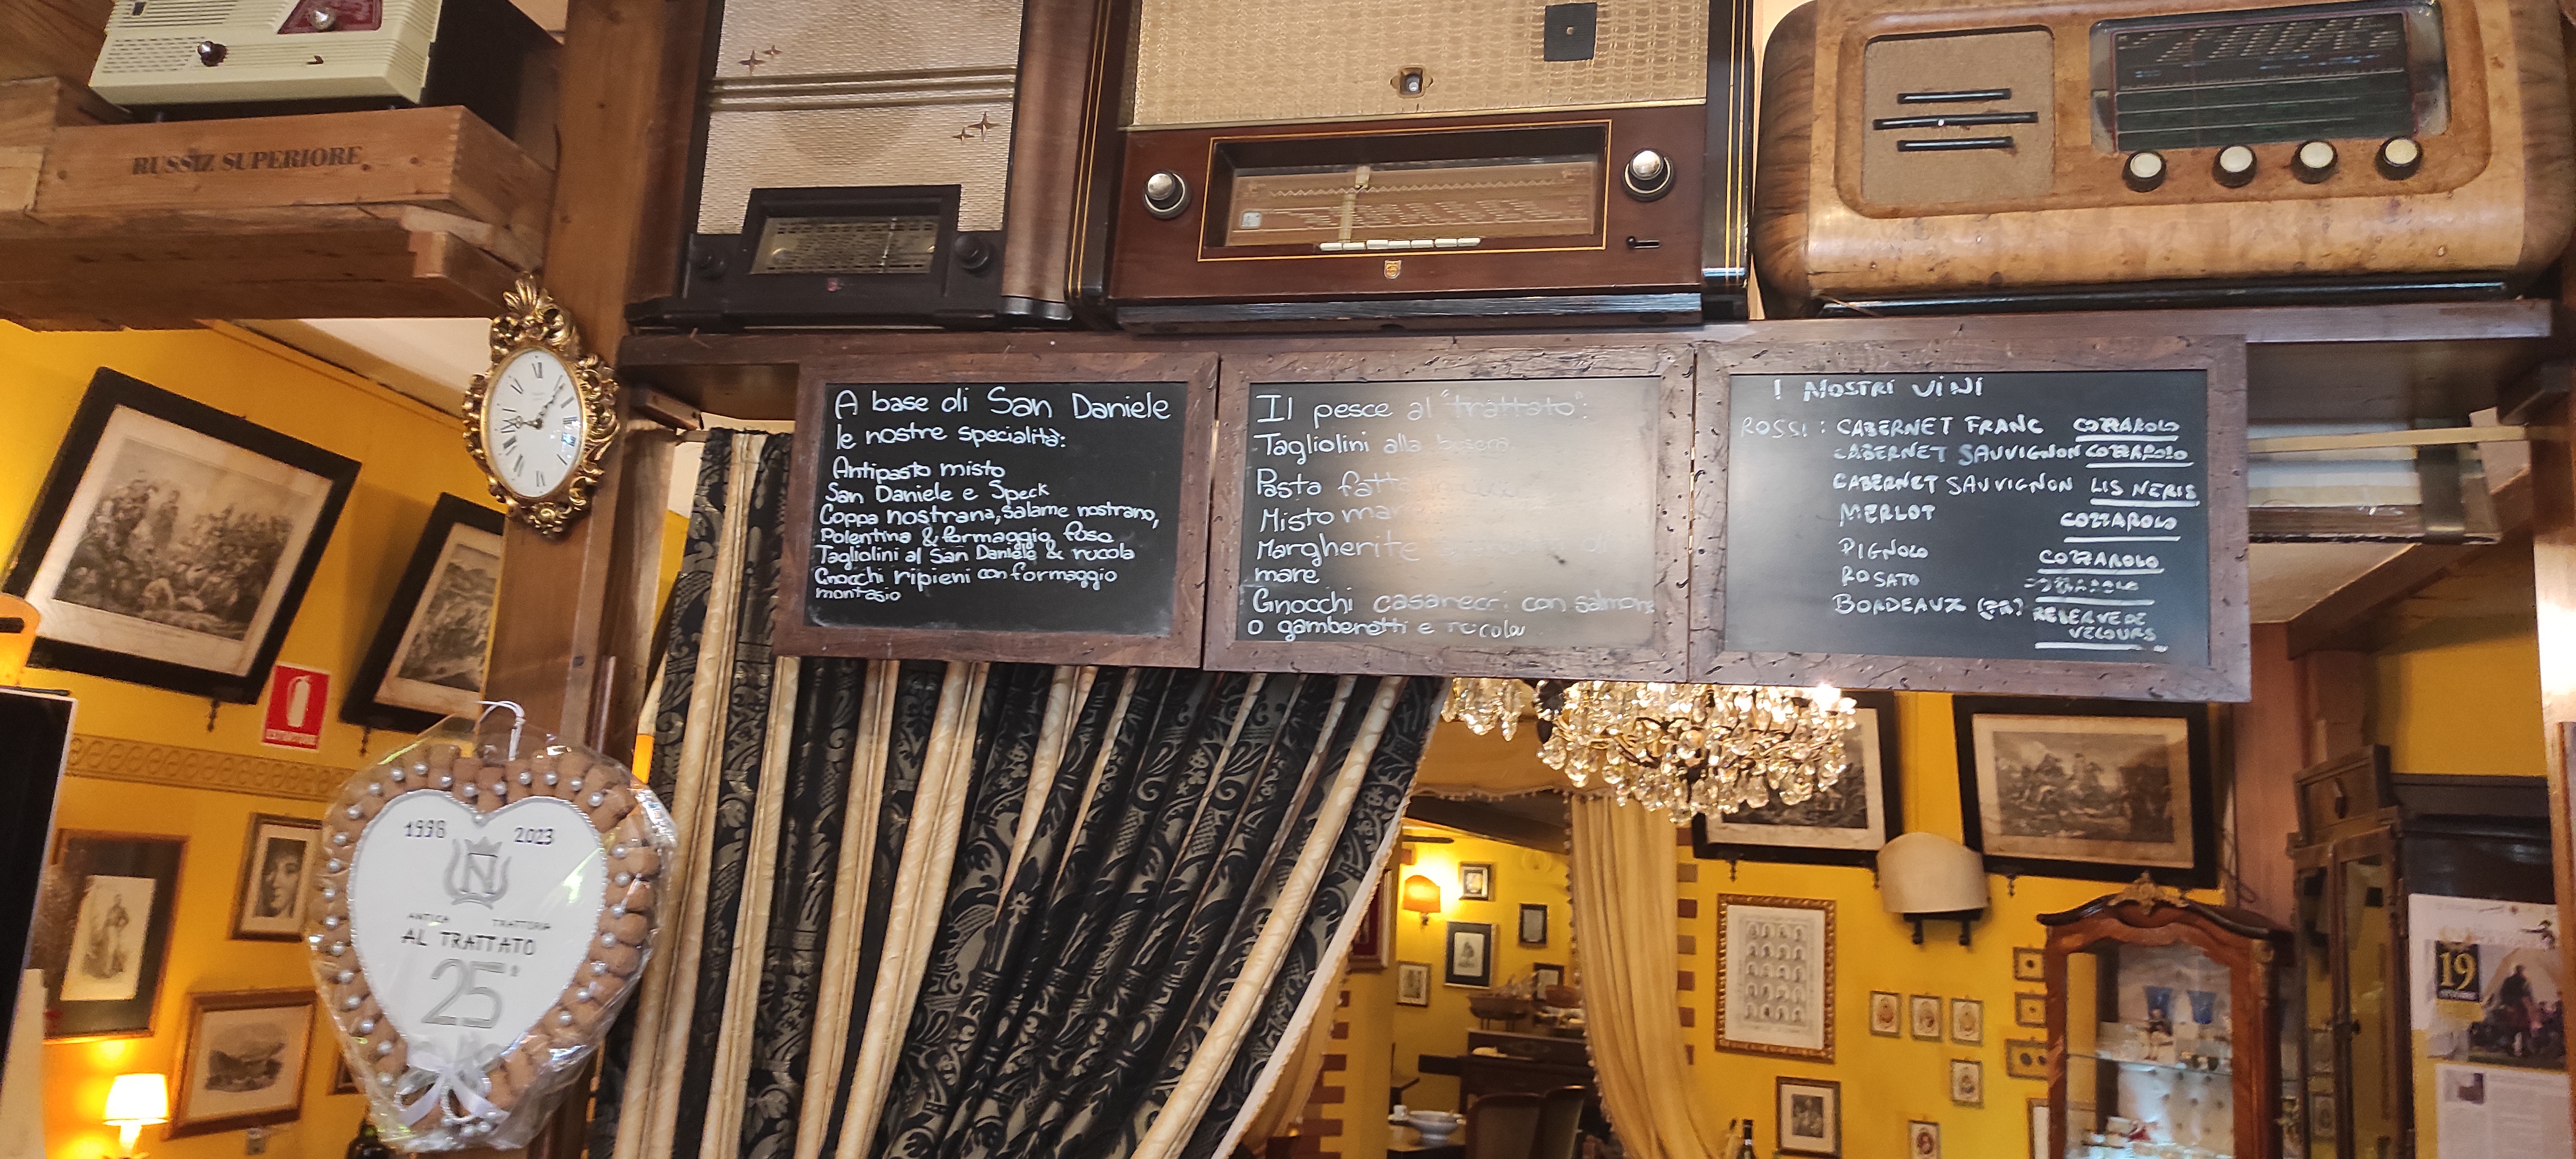 RUSSIZ SUPERIORE
A base di San Daniele
le nostre specialità:
Antipasto misto
San Daniele e Speck
Coppa nostrana, Salame nostrano,
Polentina & formaggio fuso
Tagliolini al San Daniele & rucola
Gnocchi ripieni con formaggio
montasio
Il pesce al "trattato":
Tagliolini alla busera
Pasta
Misto
Margherite
mare
Gnocchi casarecci con salmone
o gamberetti e rucola
I NOSTRI VINI
ROSSI: CABERNET FRANC COZZAROLO
CABERNET SAUVIGNON COZZAROLO
CABERNET SAUVIGNON LIS NERIS
MERLOT COZZAROLO
PIGNOLO COZZAROLO
ROSATO COZZAROLO
BORDEAUX (FR) RESERVE DE
VELOURS
1998 2023
N
ANTICA TRATTORIA
AL TRATTATO
25°
19